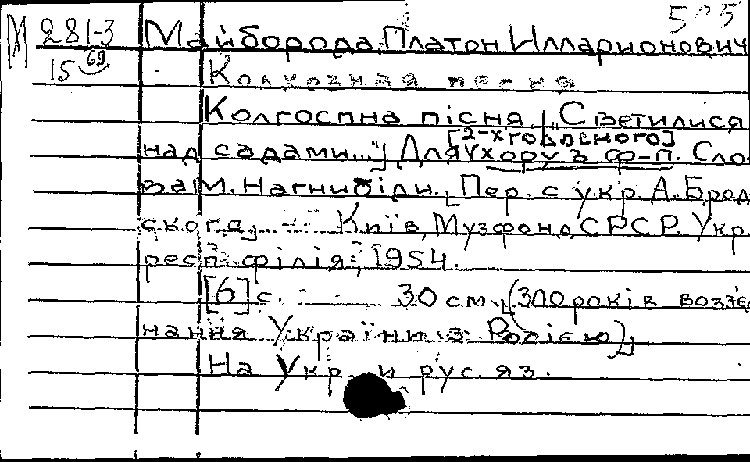 М 281-3 Майборода, Платон Илларионович
15 69 Колхозная песня
Колгоспна пісня. [„Светилися
[2-хголосного]
над садами..."] Для хору з ф-п. Сло-
ва М. Нагнибіди. [Пер. с укр. А. Брод
ского]. — Київ, Музфонд СРСР. Укр.
респ. філія, 1954.
[6] с. 30 см. (300 років возз'є
нання України з Росією)
На укр. и рус. яз.